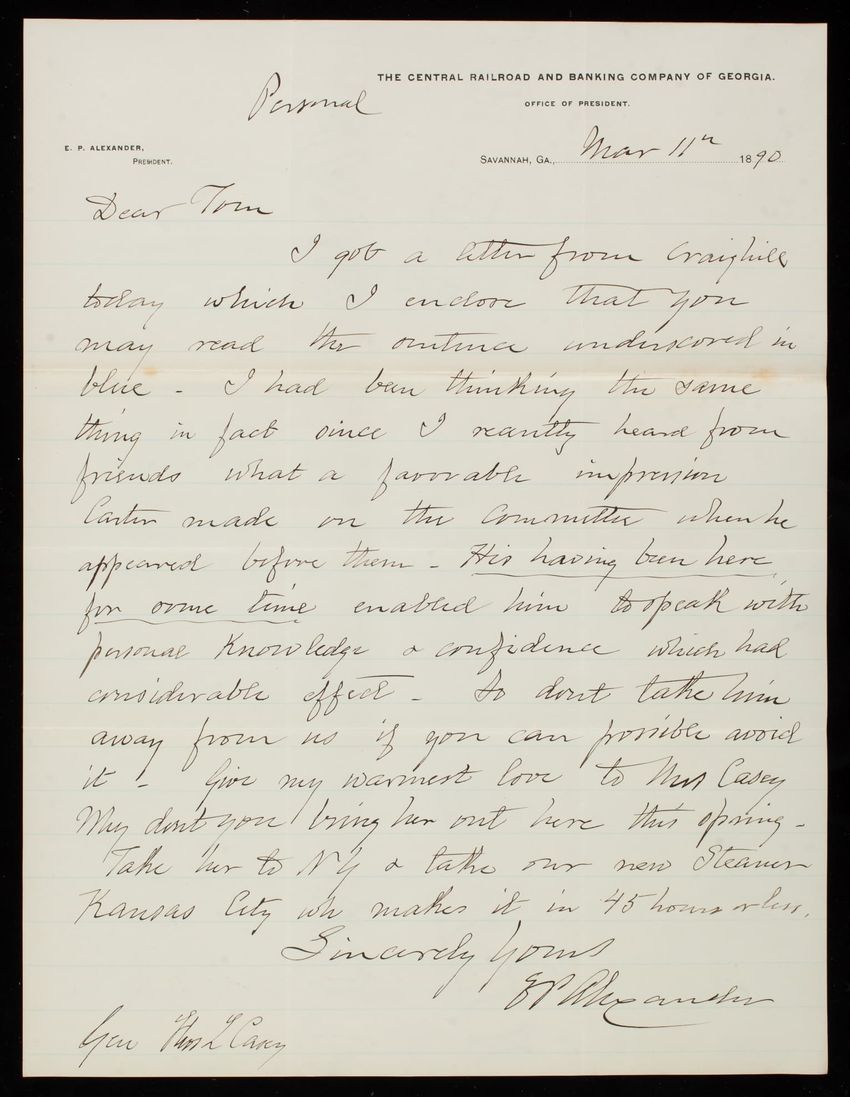 THE CENTRAL RAILROAD AND BANKING COMPANY OF GEORGIA.
Personal
OFFICE OF PRESIDENT.
E. P. ALEXANDER,
PRESIDENT.
SAVANNAH, GA., Mar 11th 1890
Dear Tom
I got a letter from Craighill
today which I enclose that you
may read the sentence underscored in
blue - I had been thinking the same
thing in fact since I recently heard from
friends what a favorable impression
Carter made on the Committee when he
appeared before them - His having been here
for some time enabled him to speak with
personal Knowledge & confidence which had
considerable effect - So dont take him
away from us if you can possible avoid
it - Give my warmest love to Mrs Casey
Why dont you bring her out here this spring -
Take her to NY & take our new Steamer
Kansas City wh makes it in 45 hours or less.
Sincerely Yours
EP Alexander
Gen Thos L Casey